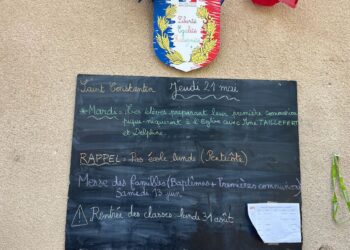 Liberté
Egalité
Fraternité
Saint Constantin Jeudi 21 mai
* Mardi : Les élèves préparant leur première communion
pique-niqueront à l'Eglise avec Mme TAILLEFERT
et Delphine.
RAPPEL : Pas école lundi (Pentecôte)
Messe des familles (Baptêmes + Premières communions)
Samedi 13 juin
Rentrée des classes lundi 31 août